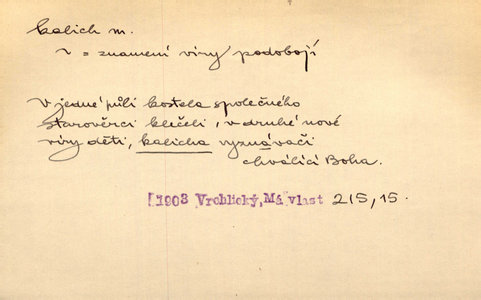 kalich m.
~ = znamení víry podobojí
V jedné půli kostela společného
starověrci klečeli, v druhé nové
víry děti, kalicha vyznávači
chválící Boha.
[1903 Vrchlický, Má vlast 215, 15.